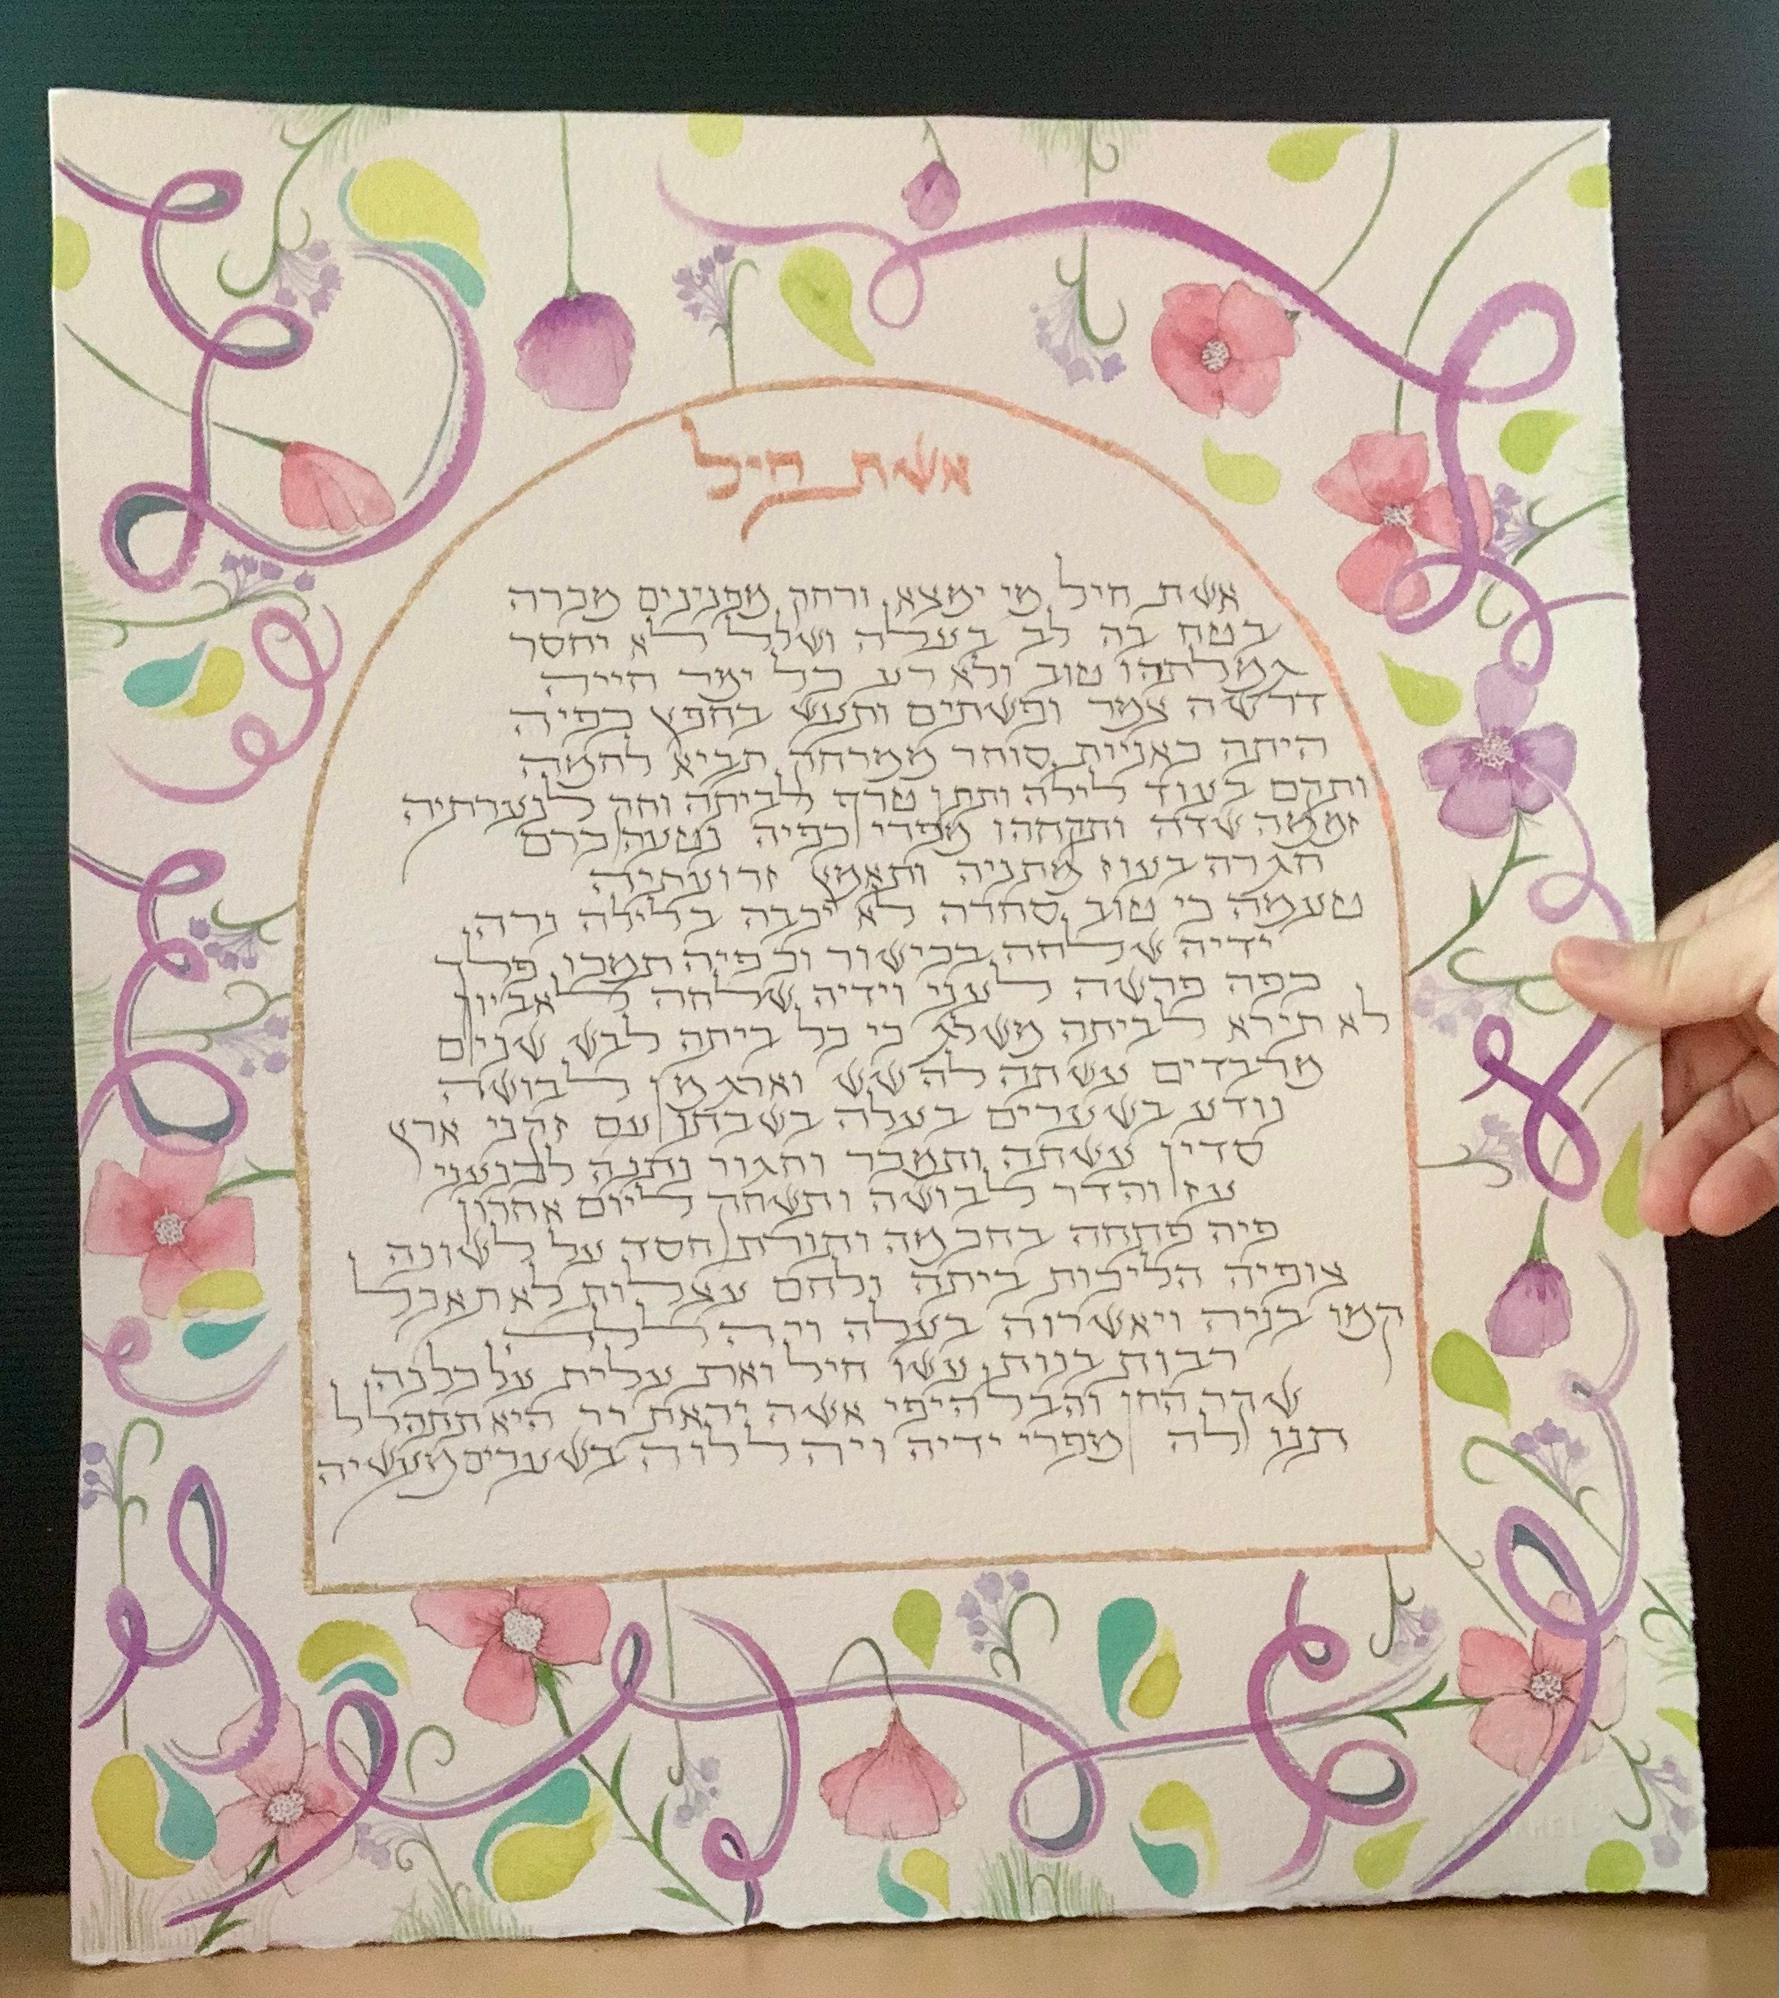 אשת חיל
אשת חיל מי ימצא ורחק מפנינים מכרה
בטח בה לב בעלה ושלל לא יחסר
גמלתהו טוב ולא רע כל ימי חייה
דרשה צמר ופשתים ותעש בחפץ כפיה
היתה כאניות סוחר ממרחק תביא לחמה
ותקם בעוד לילה ותתן טרף לביתה וחק לנערתיה
זממה שדה ותקחהו מפרי כפיה נטעה כרם
חגרה בעוז מתניה ותאמץ זרועתיה
טעמה כי טוב סחרה לא יכבה בלילה נרה
ידיה שלחה בכישור וכפיה תמכו פלך
כפה פרשה לעני וידיה שלחה לאביון
לא תירא לביתה משלג כי כל ביתה לבש שנים
מרבדים עשתה לה שש וארגמן לבושה
נודע בשערים בעלה בשבתו עם זקני ארץ
סדין עשתה ותמכר וחגור נתנה לכנעני
עז והדר לבושה ותשחק ליום אחרון
פיה פתחה בחכמה ותורת חסד על לשונה
צופיה הליכות ביתה ולחם עצלות לא תאכל
קמו בניה ויאשרוה בעלה ויהללה
רבות בנות עשו חיל ואת עלית על כלנה
שקר החן והבל היפי אשה יראת יי היא תתהלל
תנו לה מפרי ידיה ויהללוה בשערים מעשיה